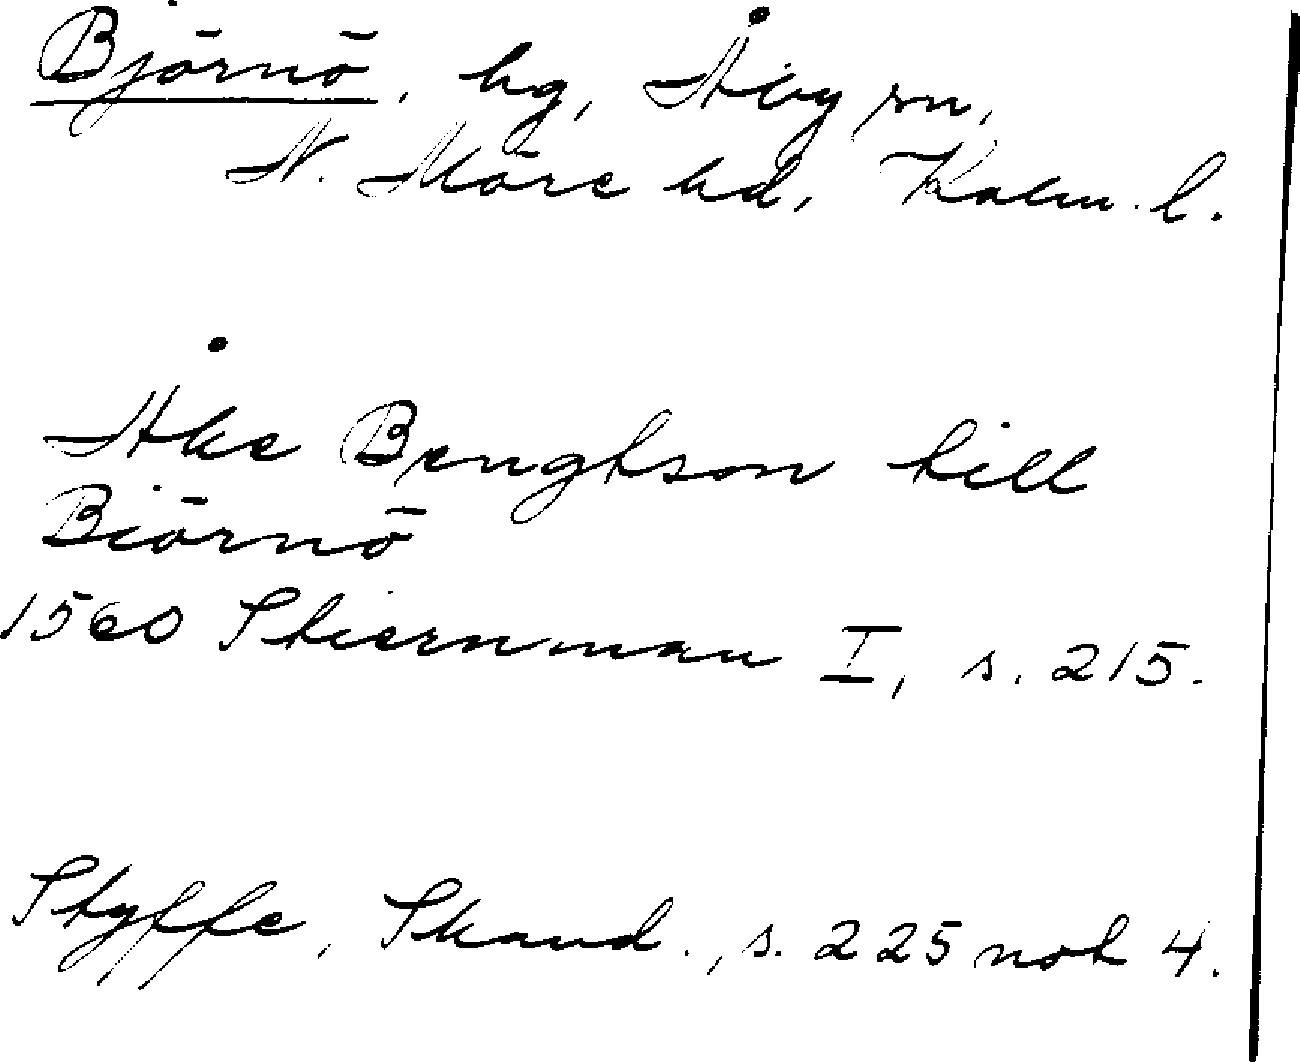 Björnö, hg, Åby sn,
N. Möre hd, Kalm. l.
Åke Bengtson till
Biörnö
1560 Stiernman I, s. 215.
Styffe, Skand., s. 225 not 4.